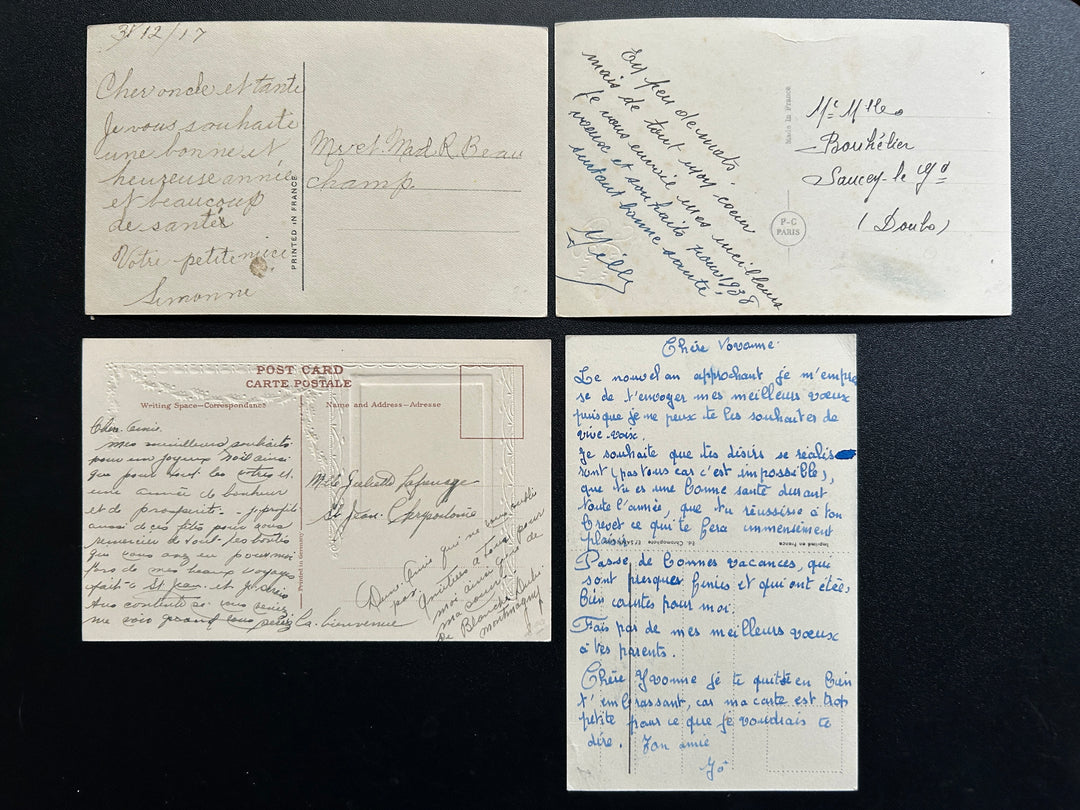 31/12/17
Cher oncle et tante
Je vous souhaite
une bonne et
heureuse année
et beaucoup
de santé
Votre petite niece
Simonne
PRINTED IN FRANCE
Mr et Mad. R. Beau
champ
En peu de mots.
mais de tout mon coeur
je vous envoie mes meilleurs
voeux et souhaits pour 1938
surtout bonne santé
Made in France
P-C
PARIS
Mr Mlles
Bouhélier
(Doubs)
POST CARD
CARTE POSTALE
Writing Space—Correspondance
Name and Address—Adresse
Chère Amie
mes meilleurs souhaits
pour un joyeux Noël ainsi
que pour tous les vôtres et
une année de bonheur
et de prospérité. - je profite
aussi de ces fêtes pour vous
remercier de tout les bontés
que vous avez eu pour moi
lors de mes beaux voyages
fait à St Jean. et je serais
très contente si vous veniez
me voir vous serez la bienvenue
Printed in Germany
Mlle Juliette
St Jean
D'une Amie qui ne vous oublie
pas.
à tous pour
moi ainsi que de
ma soeur
De Blanche
Montmagny
Chère Yovanne.
Le nouvel an approchant je m'empres
se de t'envoyer mes meilleurs vœux
puisque je ne peux te les souhaiter de
vive-voix.
Je souhaite que tes désirs se réalis
sent (pas tous car c'est impossible),
que tu es une bonne santé durant
toute l'année, que tu réussisse à ton
Brevet ce qui te fera immensément
plaisir.
Passe de bonnes vacances, qui
sont presques finies et qui ont étées,
bien courtes pour moi.
Fais part de mes meilleurs vœux
à tes parents.
Chère Yvonne je te quitte en bien
t'embrassant, car ma carte est trop
petite pour ce que je voudrais te
dire. Ton amie
Yô
Imprimé en France